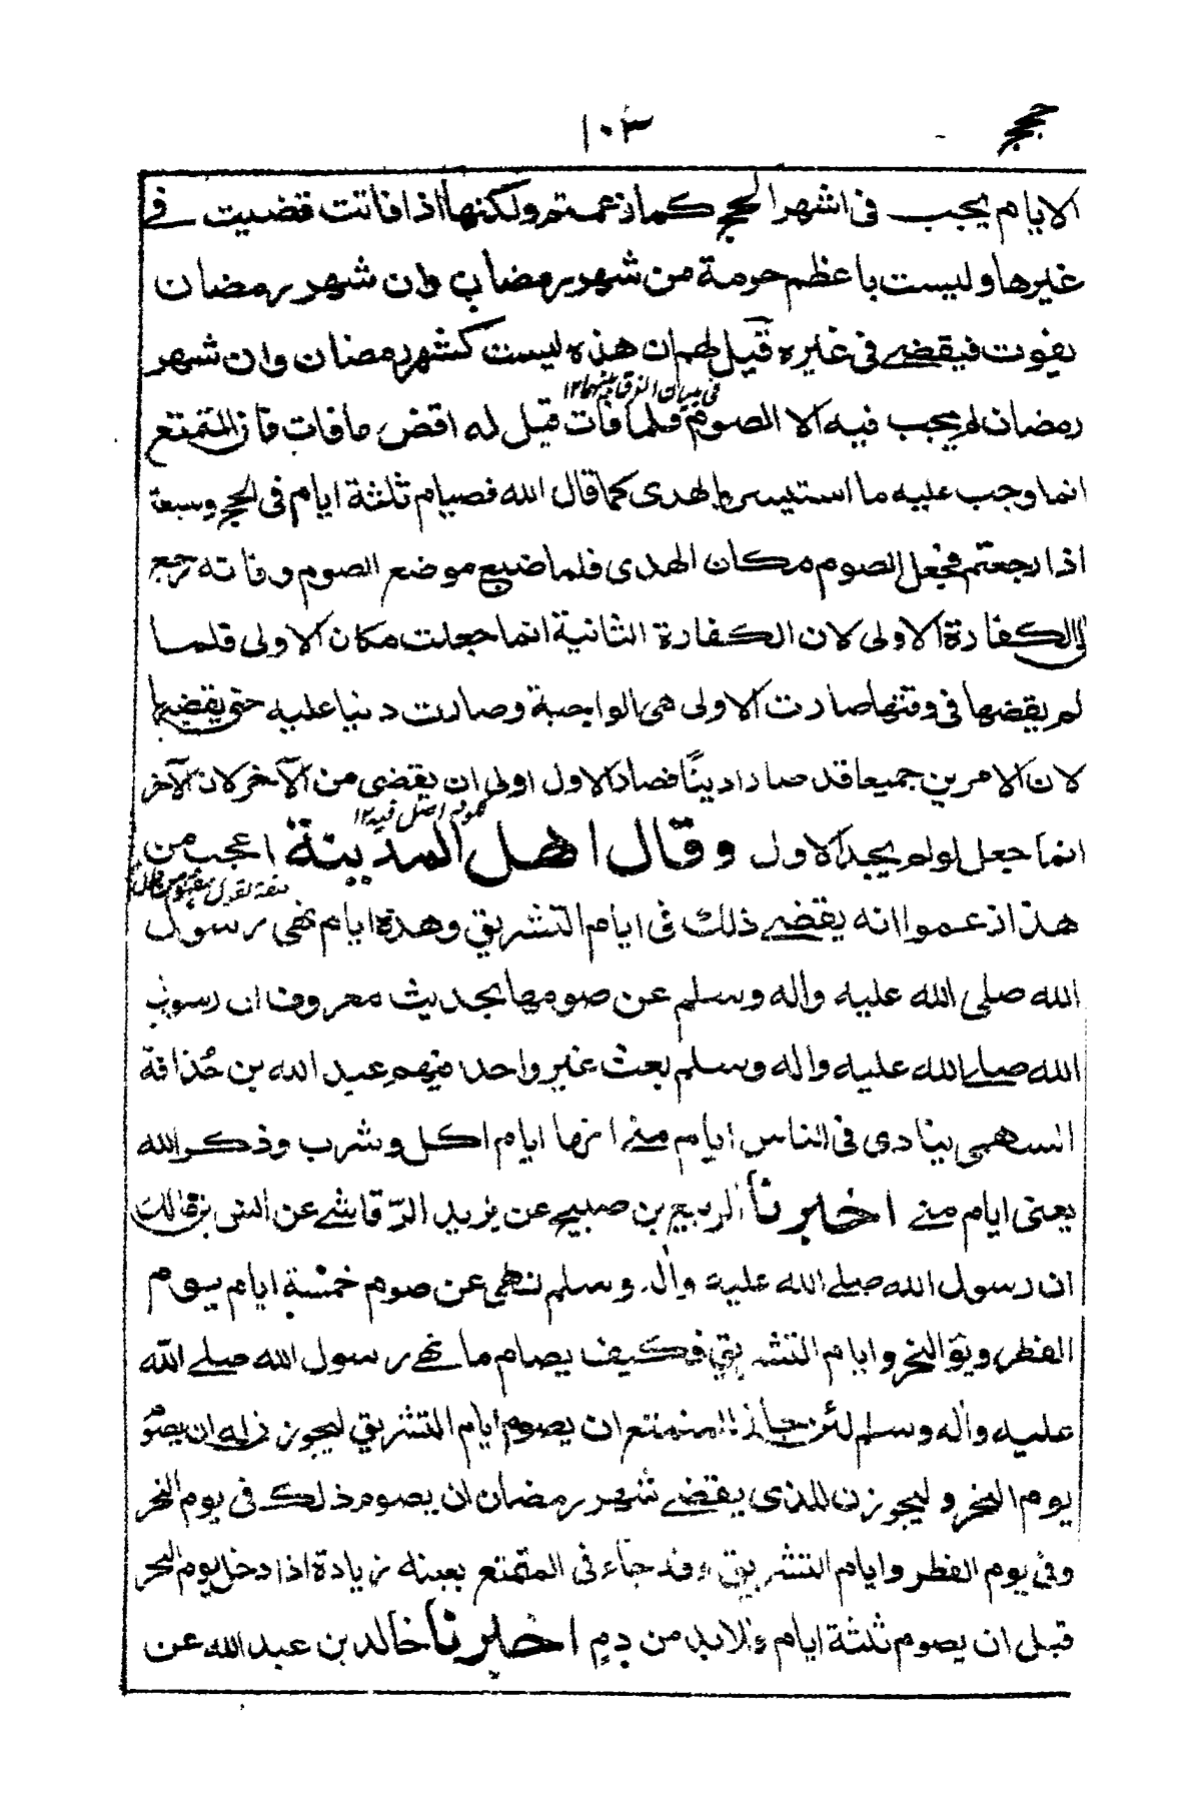 حج
١٠٣
الايام يجب فى اشهر الحج كما زعمتم ولكنها اذا فاتت قضيت فے
غيرها وليست باعظم حرمة من شهر رمضان وان شهر رمضان
يفوت فيقضے فى غيره قيل لهم ان هذه ليست كشهر رمضان وان شهر
فى بيان الفرق بينهما ١٢
رمضان لم يجب فيه الا الصوم فلما فات قيل له اقض ما فات فان المتمتع
انما وجب عليه ما استيسر من الهدى كما قال الله فصيام ثلثة ايام فى الحج وسبعة
اذا رجعتم فجعل الصوم مكان الهدى فلما ضيع موضع الصوم وفاته رجع
الى الكفارة الاولى لان الكفارة الثانية انما جعلت مكان الاولى فلما
لم يقضها فى وقتها صارت الاولى هى الواجبة وصارت دينا عليه حتى يقضيها
لان الامرين جميعا قد صارا دينًا فصار الاول اولى ان يقضى من الآخر لان الآخر
لكونه اصل فيه ١٢
انما جعل لو لم يجد الاول وقال اهل المدينة اعجب من
هذا زعموا انه يقضے ذلك فى ايام التشريق وهذه ايام نهى رسول
الله صلى الله عليه واله وسلم عن صومها بحديث معروف ان رسول
الله صلے الله عليه واله وسلم بعث غير واحد منهم عبد الله بن حُذافة
السهمى ينادى فى الناس ايام منے انها ايام اكل وشرب وذكر الله
يعنى ايام منے اخبرنا الربيع بن صبيح عن يزيد الرّقاشے عن انس بن مالك
ان رسول الله صلے الله عليه واله وسلم نهى عن صوم خمسة ايام يوم
الفطر ويوم النحر وايام التشريق فكيف يصام ما نهے رسول الله صلے الله
عليه واله وسلم لئن جاز للمتمتع ان يصوم ايام التشريق ليجوزن له ان يصوم
يوم النحر وليجوزن للذى يقضے شهر رمضان ان يصوم ذلك فى يوم النحر
وفى يوم الفطر وايام التشريق وقد جاء فى المتمتع بعينه زيادة اذا دخل يوم النحر
قبل ان يصوم ثلثة ايام فلابد من دمٍ اخبرنا خالد بن عبد الله عن